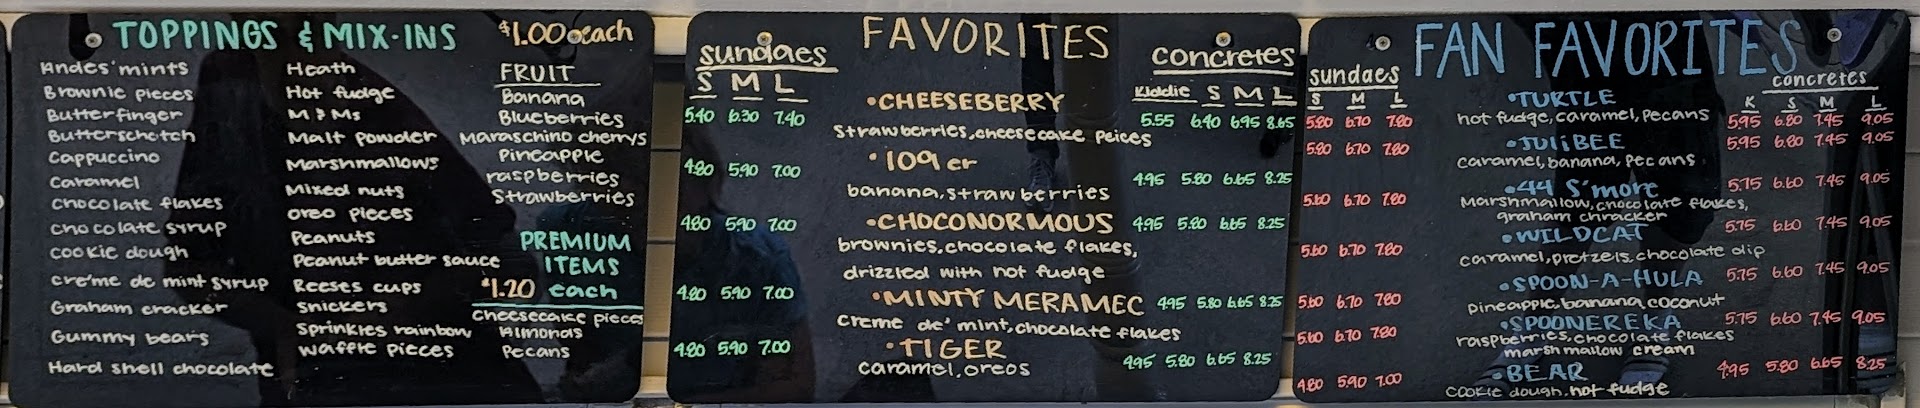 TOPPINGS & MIX-INS $1.00 each
Andes' mints
Brownie pieces
Butterfinger
Butterscotch
Cappuccino
Caramel
Chocolate flakes
Chocolate syrup
cookie dough
creme de mint syrup
Graham cracker
Gummy bears
Hard shell chocolate
Heath
Hot fudge
M & Ms
Malt powder
Marshmallows
Mixed nuts
oreo pieces
Peanuts
Peanut butter sauce
Reeses cups
snickers
Sprinkles rainbow
waffle pieces
FRUIT
Banana
Blueberries
Maraschino cherrys
Pineapple
raspberries
Strawberries
PREMIUM
ITEMS
$1.20 each
cheesecake pieces
Almonds
Pecans
FAVORITES
sundaes
S M L
concretes
Kiddie S M L
•CHEESEBERRY
5.40 6.30 7.40
5.55 6.40 6.95 8.65
strawberries, cheesecake peices
•109er
4.80 5.90 7.00
4.95 5.80 6.65 8.25
banana, strawberries
•CHOCONORMOUS
4.80 5.90 7.00
4.95 5.80 6.65 8.25
brownies, chocolate flakes,
drizzled with hot fudge
•MINTY MERAMEC
4.80 5.90 7.00
4.95 5.80 6.65 8.25
creme de' mint, chocolate flakes
•TIGER
4.80 5.90 7.00
4.95 5.80 6.65 8.25
caramel, oreos
FAN FAVORITES
sundaes
S M L
concretes
K S M L
•TURTLE
5.80 6.70 7.80
5.95 6.80 7.45 9.05
hot fudge, caramel, pecans
•JULiBEE
5.80 6.70 7.80
5.95 6.80 7.45 9.05
caramel, banana, pecans
•44 S'more
5.60 6.70 7.80
5.75 6.60 7.45 9.05
Marshmallow, chocolate flakes,
graham chracker
•WILDCAT
5.60 6.70 7.80
5.75 6.60 7.45 9.05
caramel, pretzels, chocolate dip
•SPOON-A-HULA
5.60 6.70 7.80
5.75 6.60 7.45 9.05
pineapple, banana, coconut
•SPOONEREKA
5.60 6.70 7.80
5.75 6.60 7.45 9.05
raspberries, chocolate flakes
marshmallow cream
•BEAR
4.80 5.90 7.00
4.95 5.80 6.65 8.25
cookie dough, hot fudge